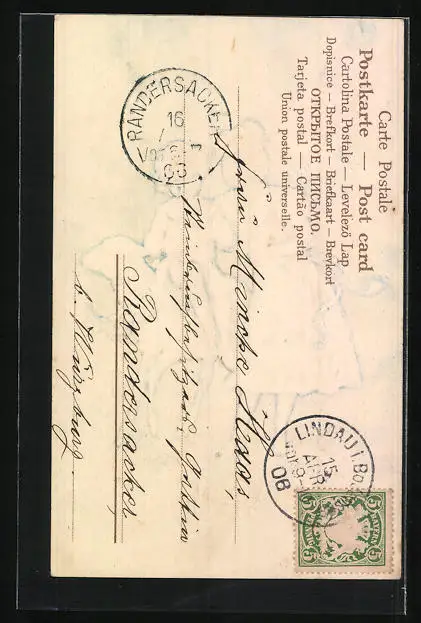 Carte Postale
Postkarte — Post card
Cartolina Postale — Levelező Lap
Dopisnice — Brefkort — Briefkaart — Brevkort
ОТКРЫТОЕ ПИСЬМО.
Tarjeta postal — Cartão postal
Union postale universelle.
LINDAU i. Bo
15
APR
06
5 BAYERN 5
RANDERSACKER
16
06
Frau
Weinbergsbesitzers Gattin
Randersacker
b. Würzburg.